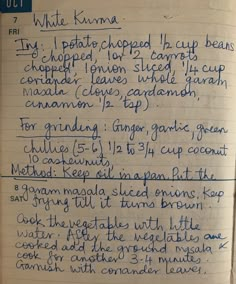 OCT
7
White Kurma.
FRI
Ing: 1 potato, chopped 1/2 cup beans
chopped, 1 or 2 carrots
chopped 1 onion sliced, 1/4 cup
coriander leaves whole garam
masala (cloves, cardamon,
cinnamon 1/2 tsp)
For grinding: Ginger, garlic, green
chillies (5-6) 1/2 to 3/4 cup coconut
10 cashewnuts
Method: Keep oil in a pan. Put the
8 garam masala sliced onions. Keep
SAT frying till it turns brown.
Cook the vegetables with little
water. After the vegetables are
cooked add the ground masala &
cook for another 3-4 minutes.
Garnish with coriander leaves.